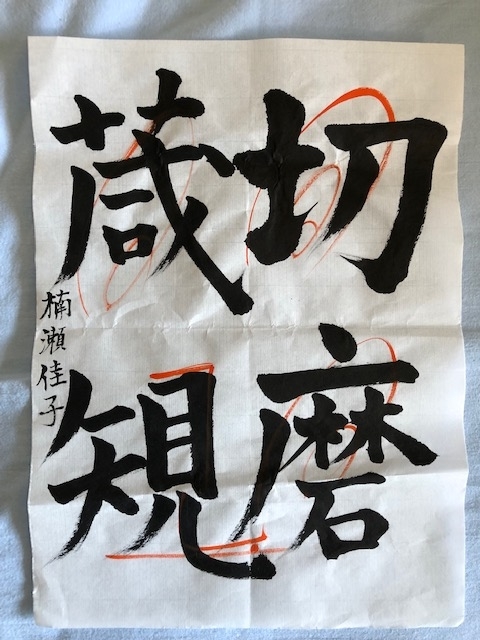 切磨
箴規
楠瀬佳子